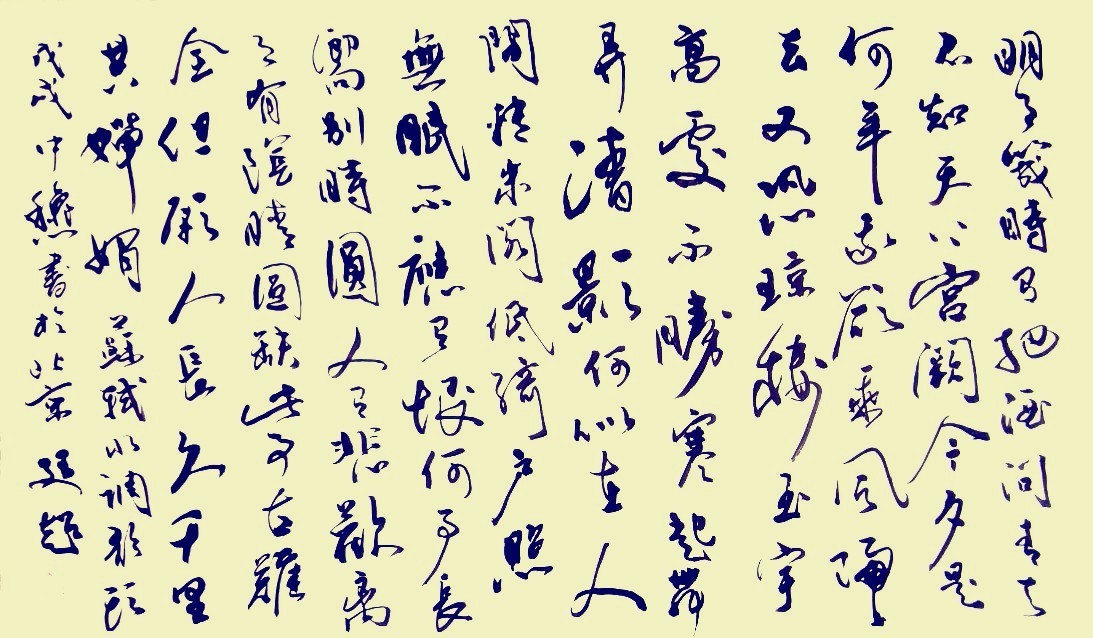 明月幾時有把酒問青天
不知天上宮闕今夕是
何年我欲乘風歸
去又恐琼樓玉宇
高處不勝寒起舞
弄清影何似在人
間轉朱閣低綺戶照
無眠不應有恨何事長
嚮別時圓人有悲歡离
有陰晴圓缺此事古難
全但願人長久千里
共嬋娟 蘇軾水調歌頭
戊戌中穐書於北京